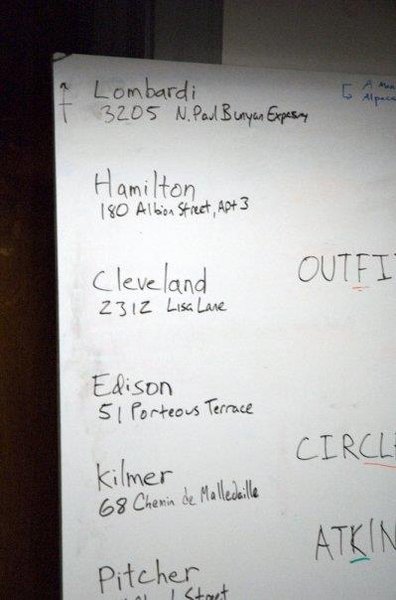 Lombardi
3205 N. Paul Bunyan Expessy
Hamilton
180 Albion Street, Apt 3
Cleveland
2312 Lisa Lane
Edison
51 Porteous Terrace
Kilmer
68 Chemin de Malledaille
Pitcher
Street
A
Alpaca
OUTFI
CIRCL
ATKIN